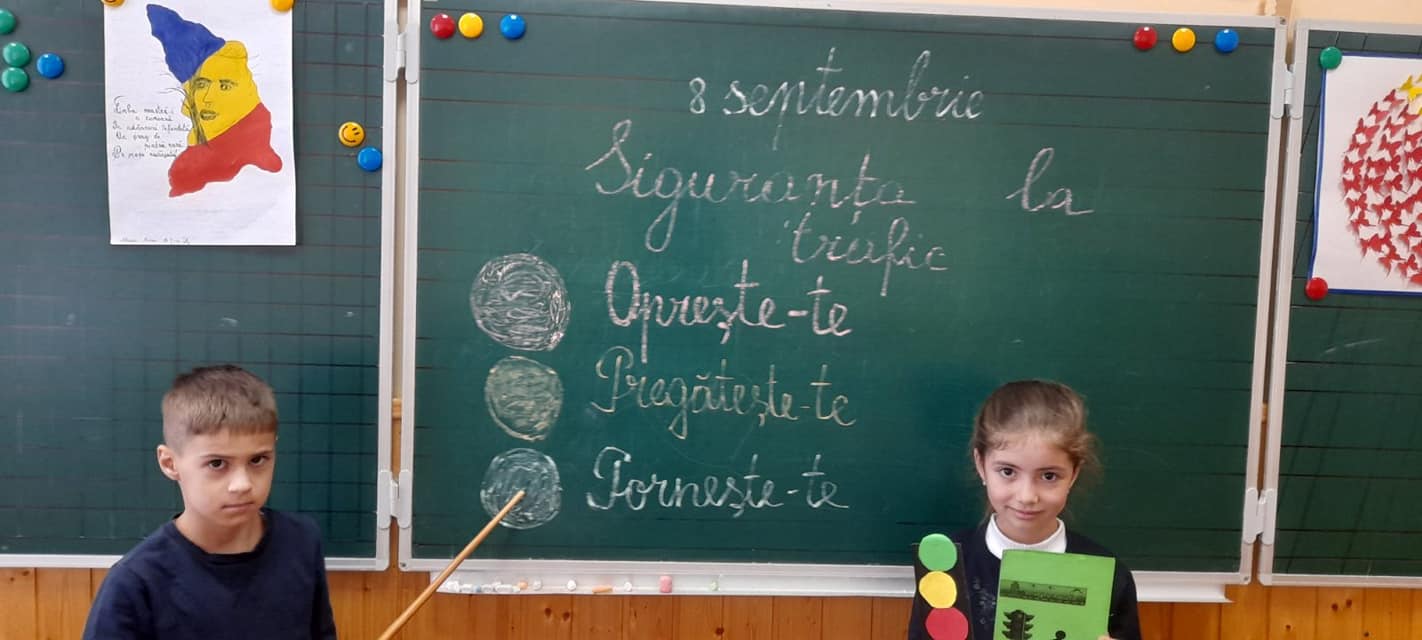 Limba noastră-i
o comoară
În adâncuri înfundată
Un șirag de
piatră rară
Pe moșie revărsată
8 septembrie
Siguranța la
trafic
Oprește-te
Pregătește-te
Pornește-te